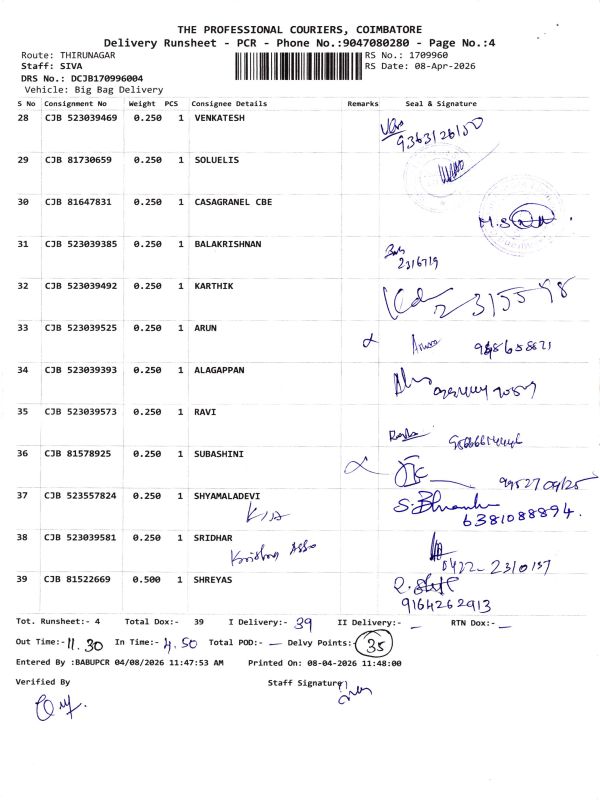 THE PROFESSIONAL COURIERS, COIMBATORE
Delivery Runsheet - PCR - Phone No.:9047080280 - Page No.:4
Route: THIRUNAGAR RS No.: 1709960
Staff: SIVA RS Date: 08-Apr-2026
DRS No.: DCJB170996004
Vehicle: Big Bag Delivery
S No Consignment No Weight PCS Consignee Details Remarks Seal & Signature
28 CJB 523039469 0.250 1 VENKATESH
9363126100
29 CJB 81730659 0.250 1 SOLUELIS
30 CJB 81647831 0.250 1 CASAGRANEL CBE
31 CJB 523039385 0.250 1 BALAKRISHNAN
2316719
32 CJB 523039492 0.250 1 KARTHIK
33 CJB 523039525 0.250 1 ARUN
34 CJB 523039393 0.250 1 ALAGAPPAN
35 CJB 523039573 0.250 1 RAVI
36 CJB 81578925 0.250 1 SUBASHINI
9952709125
37 CJB 523557824 0.250 1 SHYAMALADEVI
6381088894.
38 CJB 523039581 0.250 1 SRIDHAR
Krishna Asso
0422-2310137
39 CJB 81522669 0.500 1 SHREYAS
9164262913
Tot. Runsheet:- 4 Total Dox:- 39 I Delivery:- 39 II Delivery:- — RTN Dox:- —
Out Time:- 11.30 In Time:- 4.50 Total POD:- — Delvy Points:- 35
Entered By :BABUPCR 04/08/2026 11:47:53 AM Printed On: 08-04-2026 11:48:00
Verified By Staff Signature